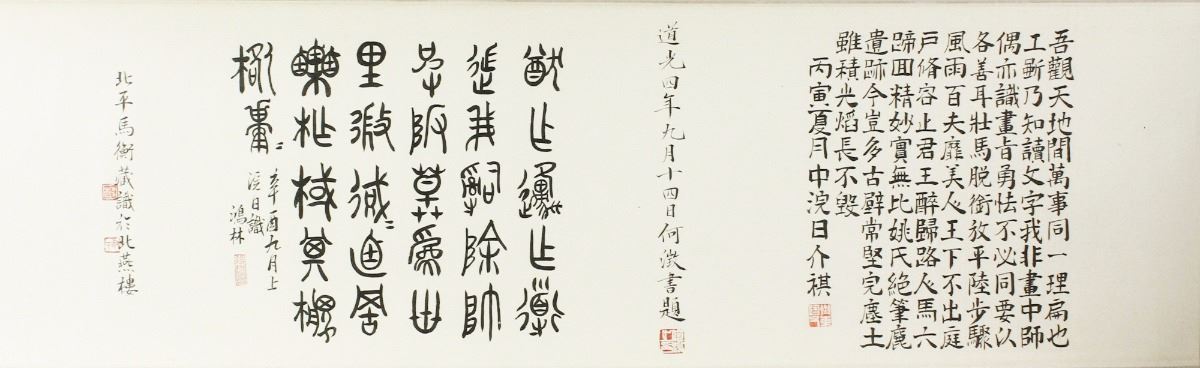 吾觀天地間萬事同一理扁也
工斲乃知讀文字我非畫中師
偶亦識畫旨勇怯不必同要以
各善耳壯馬脱銜放平陸步驟
風雨百夫靡美人王下不出庭
戶脩容止君王醉歸路人馬六
蹄回精妙實無比姚氏絶筆麤
遺跡今豈多古壁常堅完塵土
雖積光熖長不毀
丙寅夏月中浣日介祺
道光四年九月十四日何書題
猷乍邍乍導
遄我嗣除帥
阪莫爲卅
里微
柞棫其
辛酉九月上
浣日識
鴻林
北平馬衡藏識於北燕樓